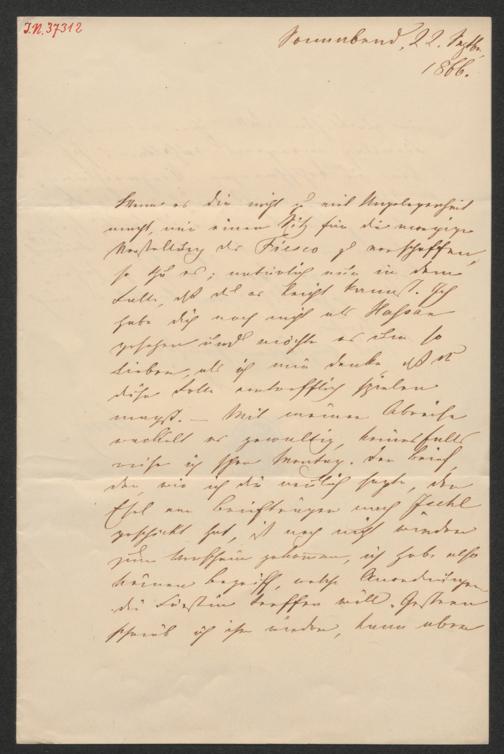 I.N. 37312
Sonnabend, 22. Septbr.
1866.
Wenn es dir nicht zu viel Ungelegenheit
macht, mir einen Sitz für die morgige
Vorstellung des Fiesco zu verschaffen,
so thu es; natürlich nur in dem
Falle, daß du es leicht kannst. Ich
habe dich noch nicht als Hassan
gesehen und möchte es um so
lieber, als ich mir denke, daß du
diese Rolle vortrefflich spielen
magst. — Mit meiner Abreise
wackelt es gewaltig, keinesfalls
reise ich schon Montag. Der Brief,
den, wie ich dir neulich sagte, der
Esel von Briefträger nach Ischl
geschickt hat, ist noch nicht wieder
zum Vorschein gekommen, ich habe also
keinen Begriff, welche Anordnungen
die Fürstin treffen will. Gestern
schrieb ich ihr wieder, kann aber